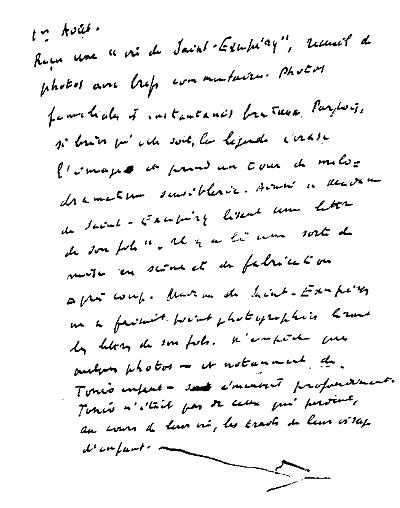 1er Août.
Reçu une "vie de Saint-Exupéry", recueil de
photos avec brefs commentaires. Photos
familiales et instantanés brutaux. Parfois,
si brève qu'elle soit, la légende écrase
l'image et prend un tour de mélo-
dramatique sensiblerie. Ainsi "Madame
de Saint-Exupéry lisant une lettre
de son fils". Il y a là une sorte de
mise en scène et de fabrication
après coup. Madame de Saint-Exupéry
ne se faisait point photographier lisant
les lettres de son fils. N'empêche que
quelques photos - et notamment de
Tonio enfant - m'émeuvent profondément.
Tonio n'était pas de ceux qui perdent,
au cours de leur vie, les traits de leur visage
d'enfant.